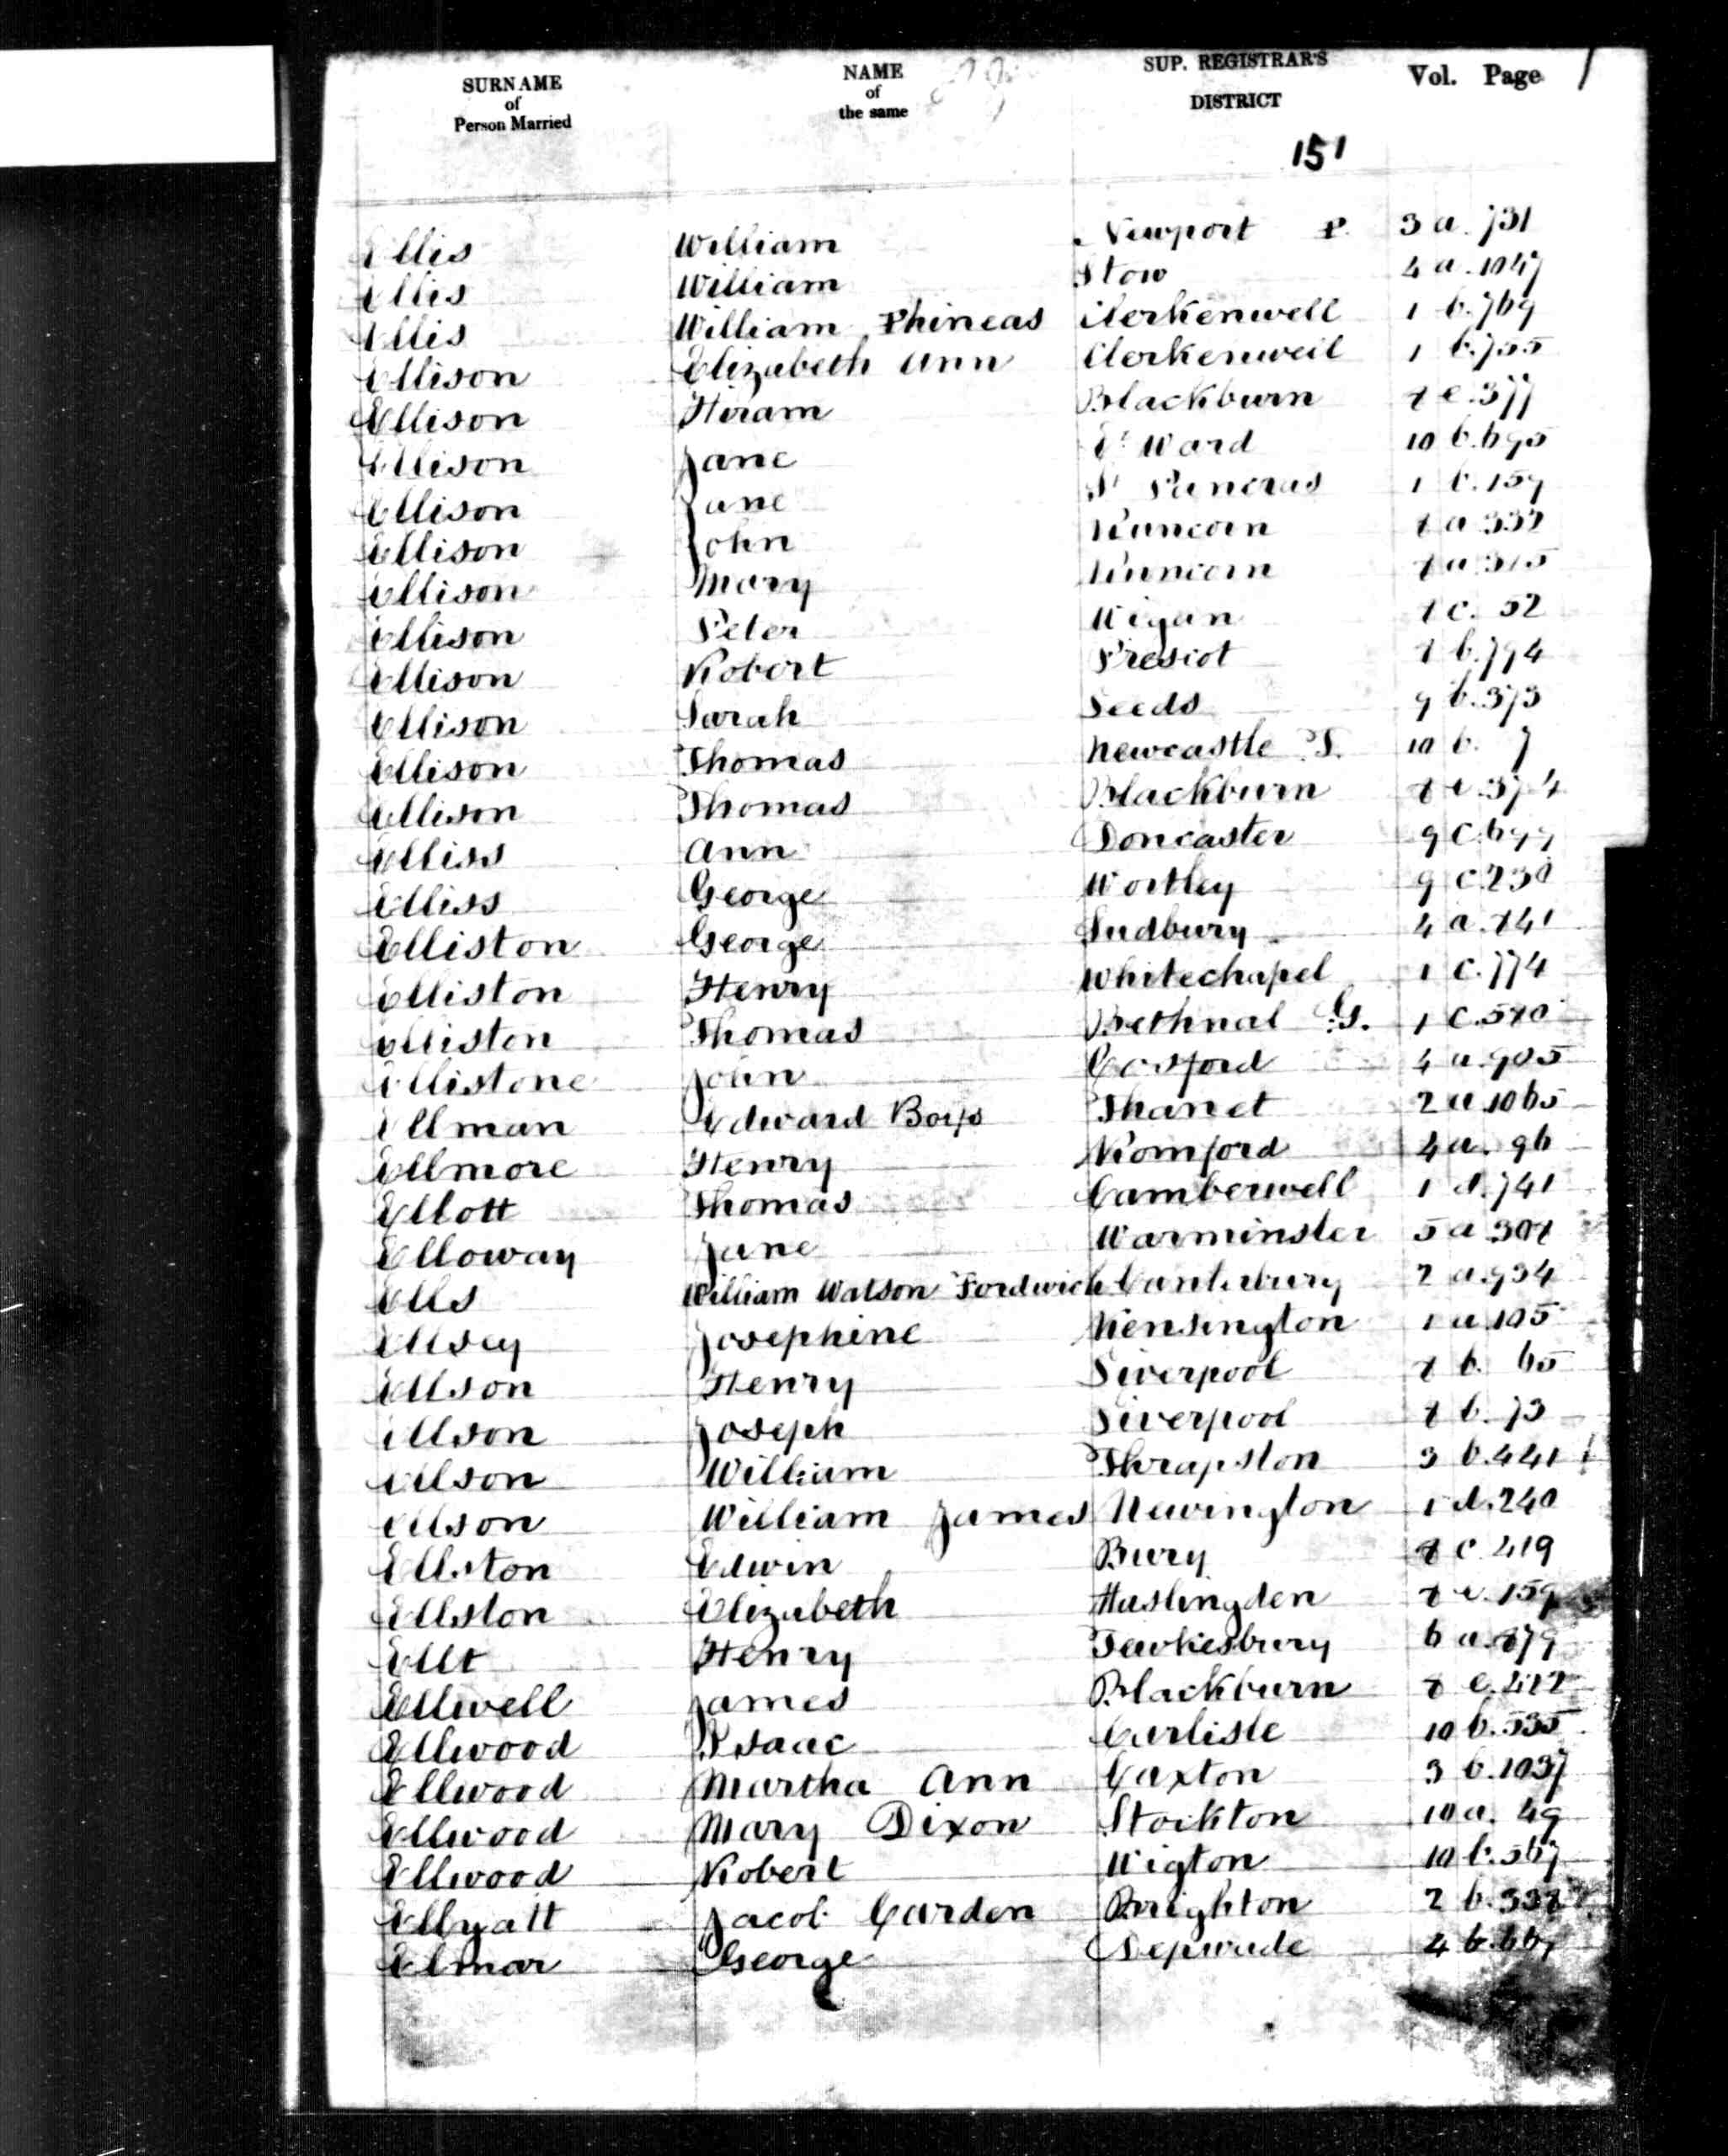 SURNAME of Person Married NAME of the same SUP. REGISTRAR'S DISTRICT Vol. Page
151
Ellis William Newport P. 3 a. 731
Ellis William Stow 4 a. 1047
Ellis William Phineas Clerkenwell 1 b. 769
Ellison Elizabeth Ann Clerkenwell 1 b. 755
Ellison Hiram Blackburn 8 e. 377
Ellison Jane E. Ward 10 b. 695
Ellison Jane St Pancras 1 b. 159
Ellison John Runcorn 8 a 332
Ellison Mary Runcorn 8 a 315
Ellison Peter Wigan 8 c. 52
Ellison Robert Prescot 8 b. 794
Ellison Sarah Leeds 9 b. 373
Ellison Thomas Newcastle T. 10 b. 7
Ellison Thomas Blackburn 8 e. 374
Elliss Ann Doncaster 9 c. 699
Elliss George Wortley 9 c. 230
Elliston George Sudbury 4 a. 841
Elliston Henry Whitechapel 1 c. 774
Elliston Thomas Bethnal G. 1 c. 580
Ellistone John Cosford 4 a. 905
Ellman Edward Boys Thanet 2 a 1065
Ellmore Henry Romford 4 a. 96
Ellott Thomas Camberwell 1 d. 741
Elloway Jane Warminster 5 a 308
Ells William Watson Fordwich Canterbury 2 a. 934
Ellsey Josephine Kensington 1 a 105
Ellson Henry Liverpool 8 b. 65
Ellson Joseph Liverpool 8 b. 73
Ellson William Thrapston 3 b. 441
Ellson William James Newington 1 d. 240
Ellston Edwin Bury 8 c. 419
Ellston Elizabeth Haslingden 8 e. 159
Ellt Henry Tewkesbury 6 a. 879
Ellwell James Blackburn 8 e. 422
Ellwood Isaac Carlisle 10 b. 535
Ellwood Martha Ann Caxton 3 b. 1037
Ellwood Mary Dixon Stockton 10 a. 49
Ellwood Robert Wigton 10 b. 567
Ellyatt Jacob Carden Brighton 2 b. 338
Elmar George Depwade 4 b.